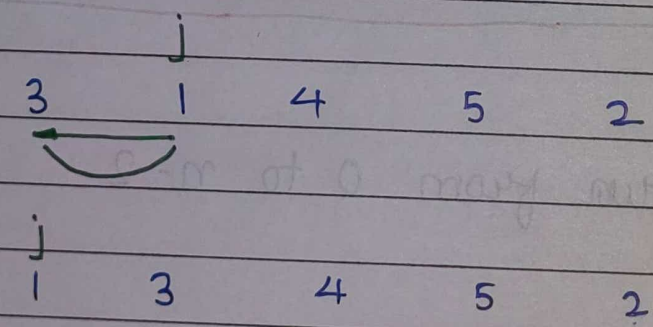 j
3 1 4 5 2
j
1 3 4 5 2